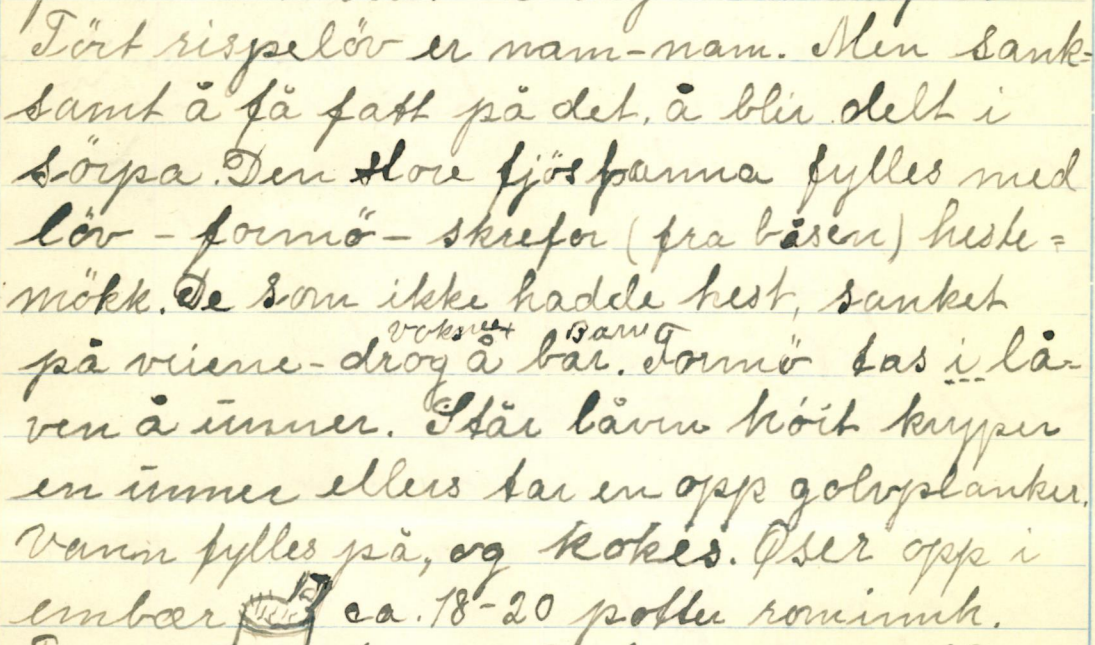 Tört rispelöv er nam-nam. Men sank-
samt å få fatt på det, å blir delt i
sörpa. Den store fjöspanna fylles med
löv - formö - skrefor (fra båsen) heste=
mökk. De som ikke hadde hest, sanket
voksne Barn
på veiene - drog å bar. Formö tas i lå-
ven å unner. Står låven höit kryper
en unner ellers tar en opp golvplanker.
Vann fylles på, og kokes. Øser opp i
embær ca. 18-20 potter rominnh.